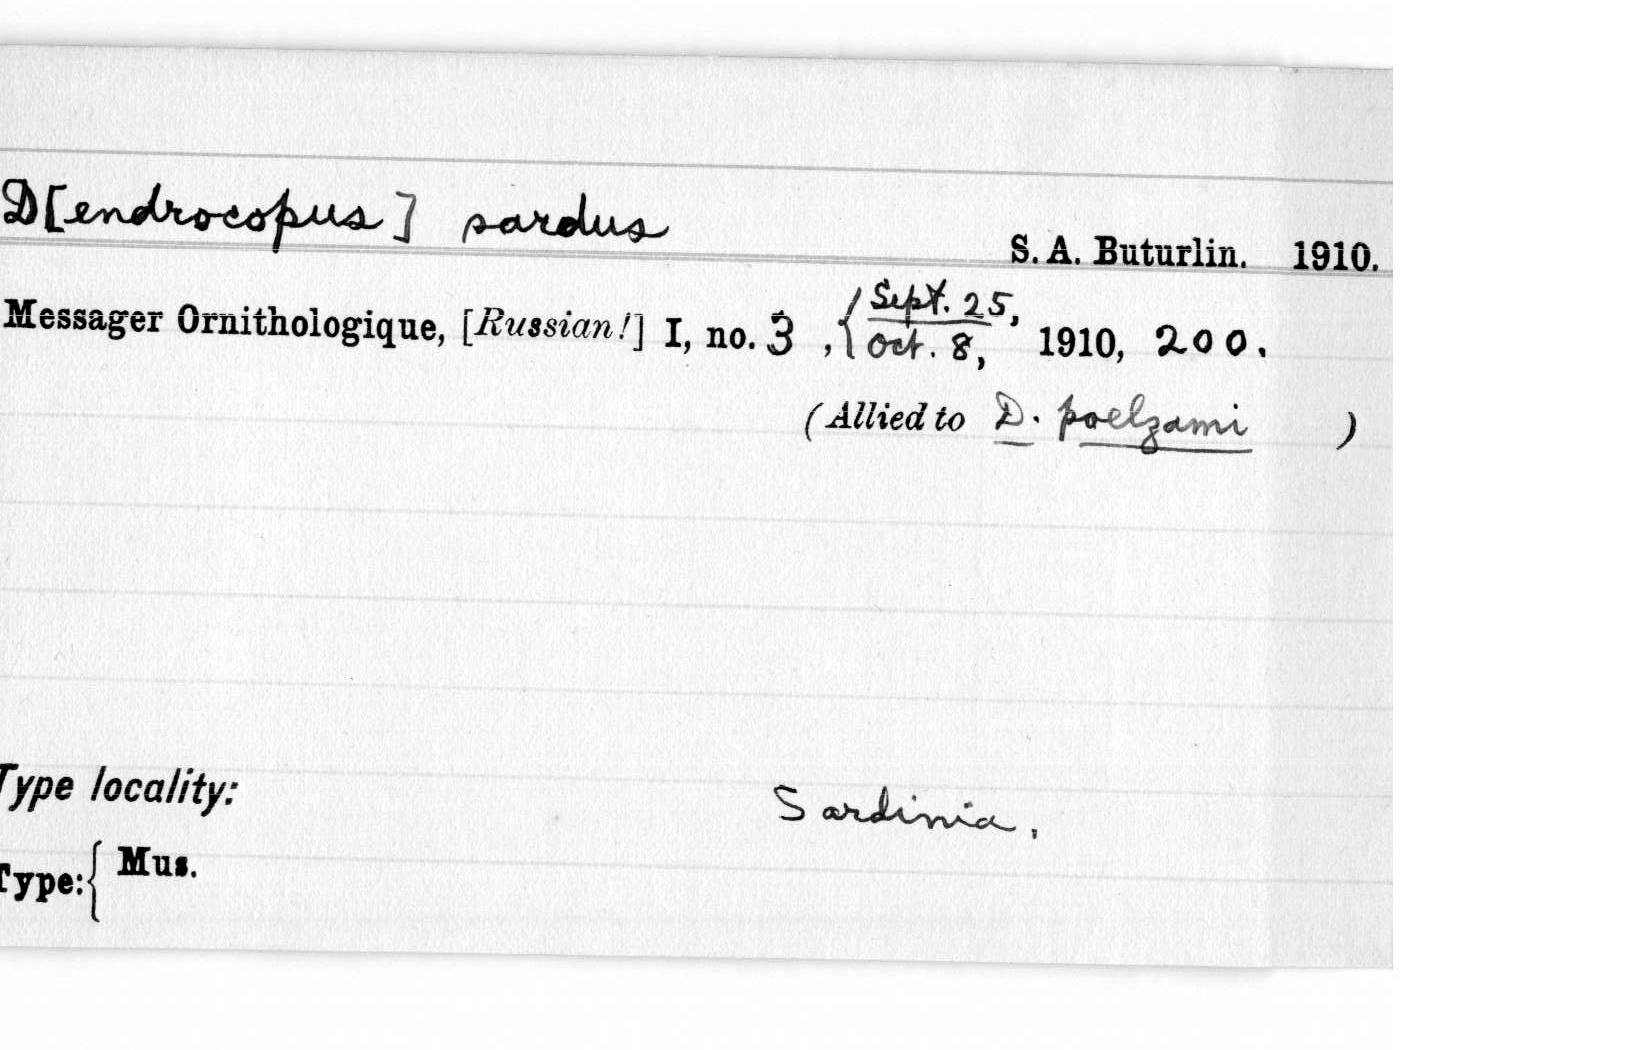 D[endrocopus] sardus
S. A. Buturlin. 1910.
Messager Ornithologique, [Russian!] I, no. 3 , { Sept. 25, / Oct. 8, 1910, 200.
(Allied to D. poelzami )
Type locality: Sardinia.
Type: { Mus.